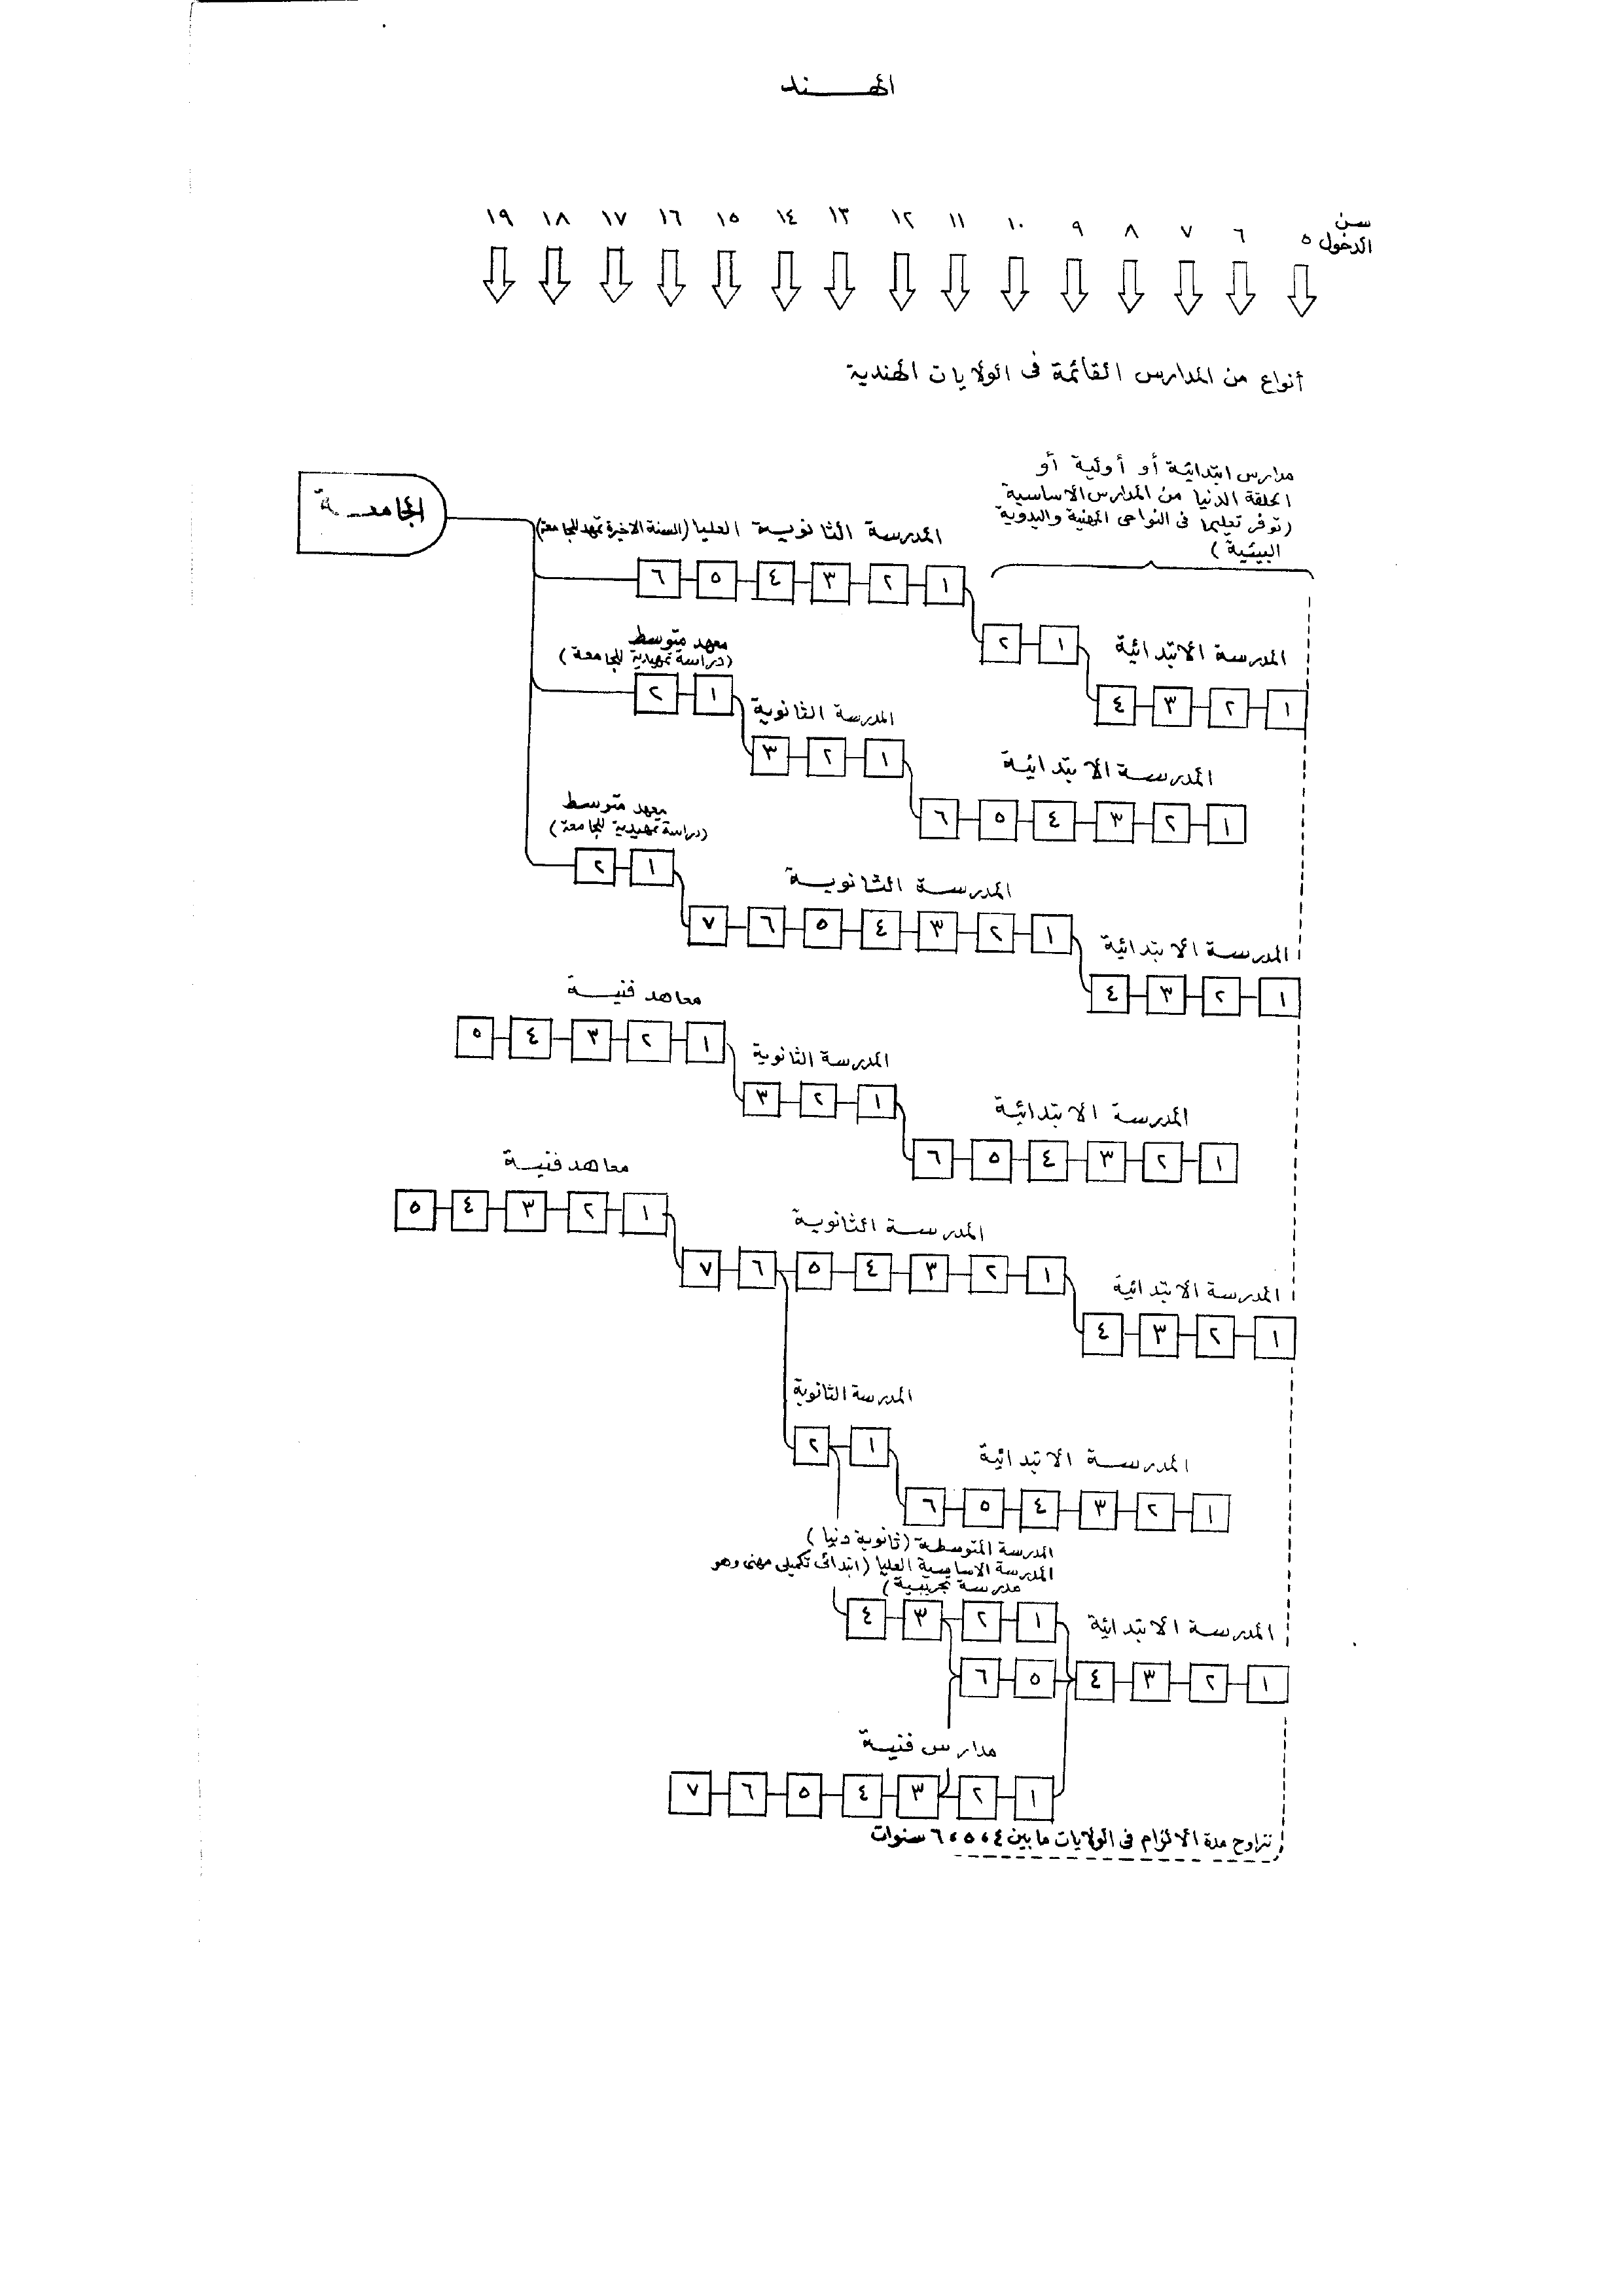 الهند
سن
الدخول ٥ ٦ ٧ ٨ ٩ ١٠ ١١ ١٢ ١٣ ١٤ ١٥ ١٦ ١٧ ١٨ ١٩
أنواع من المدارس القائمة فى الولايات الهندية
مدارس ابتدائية أو أولية أو
الحلقة الدنيا من المدارس الاساسية
(توفر تعليما فى النواحى المهنية واليدوية
البيئية)
الجامعة
المدرسة الثانوية العليا (السنة الاخيرة تمهد للجامعة)
١ ٢ ٣ ٤ ٥ ٦
١ ٢
المدرسة الابتدائية
١ ٢ ٣ ٤
معهد متوسط
(دراسة تمهيدية للجامعة)
١ ٢
المدرسة الثانوية
١ ٢ ٣
المدرسة الابتدائية
١ ٢ ٣ ٤ ٥ ٦
معهد متوسط
(دراسة تمهيدية للجامعة)
١ ٢
المدرسة الثانوية
١ ٢ ٣ ٤ ٥ ٦ ٧
المدرسة الابتدائية
١ ٢ ٣ ٤
معاهد فنية
١ ٢ ٣ ٤ ٥
المدرسة الثانوية
١ ٢ ٣
المدرسة الابتدائية
١ ٢ ٣ ٤ ٥ ٦
معاهد فنية
١ ٢ ٣ ٤ ٥
المدرسة الثانوية
١ ٢ ٣ ٤ ٥ ٦ ٧
المدرسة الابتدائية
١ ٢ ٣ ٤
المدرسة الثانوية
١ ٢
المدرسة الابتدائية
١ ٢ ٣ ٤ ٥ ٦
المدرسة المتوسطة (ثانوية دنيا)
المدرسة الاساسية العليا (ابتدائى تكميلى مهنى وهو
مدرسة تجريبية)
١ ٢ ٣ ٤
المدرسة الابتدائية
١ ٢ ٣ ٤ ٥ ٦
مدارس فنية
١ ٢ ٣ ٤ ٥ ٦ ٧
تتراوح مدة الالزام فى الولايات ما بين ٤، ٥، ٦ سنوات